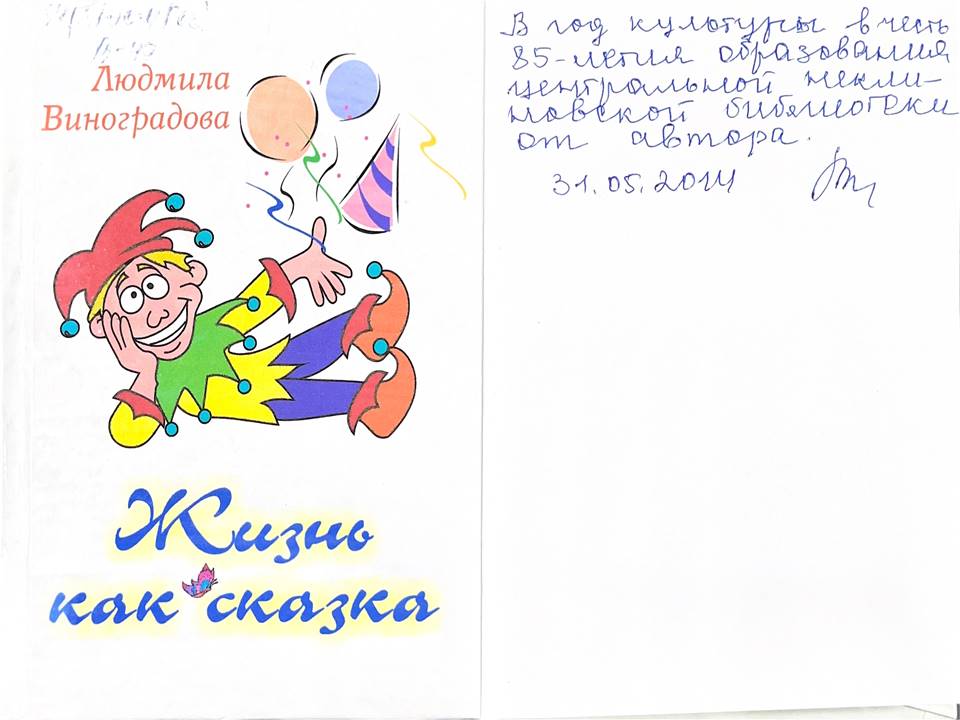 Людмила
Виноградова
Жизнь
как сказка
В год культуры в честь
85-летия образования
центральной некли-
новской библиотеки
от автора.
31.05.2014